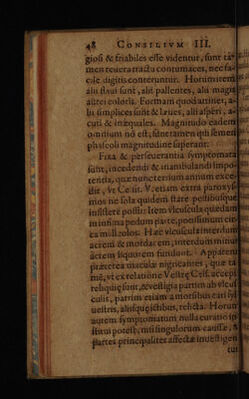 48 CONSILIVM III.
giosi & friabiles esse videntur, sunt ta-
men reuera tractu contumaces, nec fa-
cile digitis conteruntur. Horum item
alii flaui sunt, alii pallentes, alii magis
aurei coloris. Formam quod attinet, a-
lii simplices sunt & læues, alii asperi, a-
cuti & inæquales. Magnitudo eadem
omnium nō est, sūnt tamen qui semen
phaseoli magnitudine superant.
Fixa & perseuerantia symptomata
sunt, incedendi & inambulandi impo-
tentia, quæ nunc terrium annum exce-
dit, vt Cels. V. etiam extra paroxys-
mos ne sola quidem stare pedibusque
insistere possit: Item vlcuscula quædam
in infima pedum parte, potissimum cir-
ca mill colos. Hæc vlcuscula interdum
acrem & mordacem, interdum minus
acrem liquorem fundunt. Apparent
præterea maculæ nigricantes, quæ ta-
mē, vt ex relatione Vestræ Cels. accepi
reliquiæ sunt, & vestigia partim ab vlcus-
culis, partim etiam a morsibus
relicta. Horum
autem symptomatum nulla curatio in-
stitui potest, nisi singulorum caussæ, &
partes principaliter affectæ inuestigen
tur